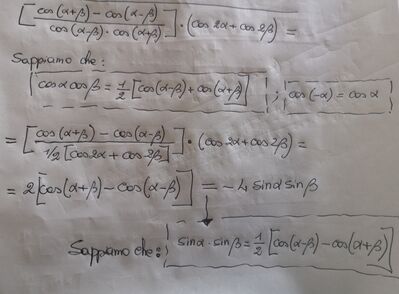 [cos(α+β) - cos(α-β) / cos(α-β) · cos(α+β)] · (cos 2α + cos 2β) =
Sappiamo che:
cosα cosβ = 1/2 [cos(α-β) + cos(α+β)] ; cos(-α) = cosα
= [cos(α+β) - cos(α-β) / 1/2 [cos2α + cos2β]] · (cos2α + cos2β) =
= 2[cos(α+β) - cos(α-β)] = -4 sinα sinβ
Sappiamo che: sinα · sinβ = 1/2 [cos(α-β) - cos(α+β)]